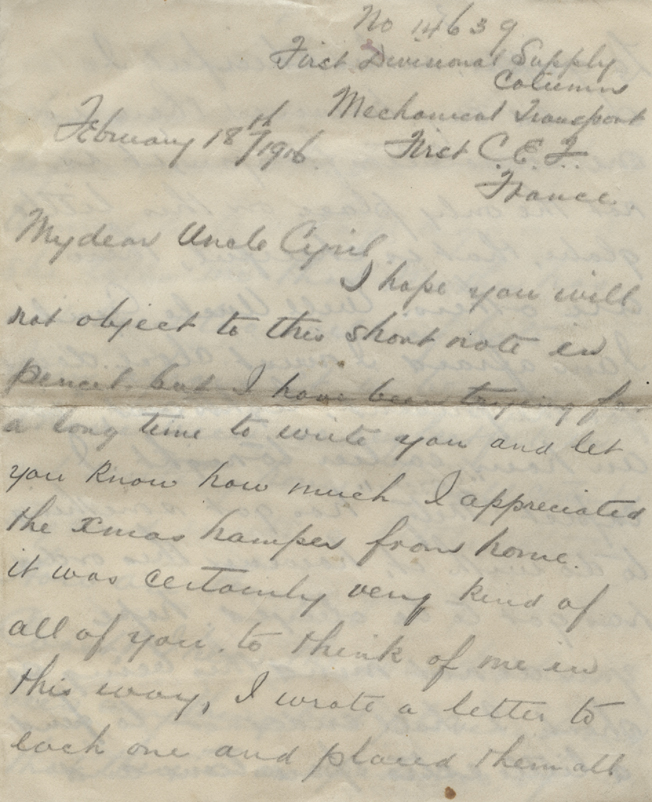 No 14639
First Divisional Supply
Column
Mechanical Transport
February 18th/1916.
First C.E.F.
France.
My dear Uncle Cyril
I hope you will
not object to this short note in
pencil. but I have been trying for
a long time to write you and let
you know how much I appreciated
the xmas hamper from home.
it was certainly very kind of
all of you. to think of me in
this way, I wrote a letter to
each one and placed them all